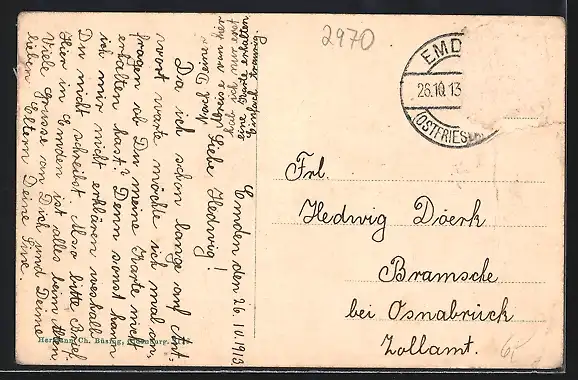 2970
EMD
26.10.13
OSTFRIES
Emden den 26. 10. 1913
Liebe Hedwig!
Da ich schon lange auf Ant-
wort warte möchte ich mal an-
fragen ob Du meine Karte nicht
erhalten hast? Denn sonst kann
ich mir nicht erklären weshalb
Du nicht schreibst. Also bitte Brief.
Hier in Emden ist alles beim Alten
Viele Grüsse an Dich und Deine
lieben Eltern Deine Fine.
Nach Deiner
Abreise von hier
hab ich nur erst
eine Karte erhalten
Einfach traurig.
Frl.
Hedwig Döerk
Bramsche
bei Osnabrück
Zollamt.
Hermann Ch. Büsing,